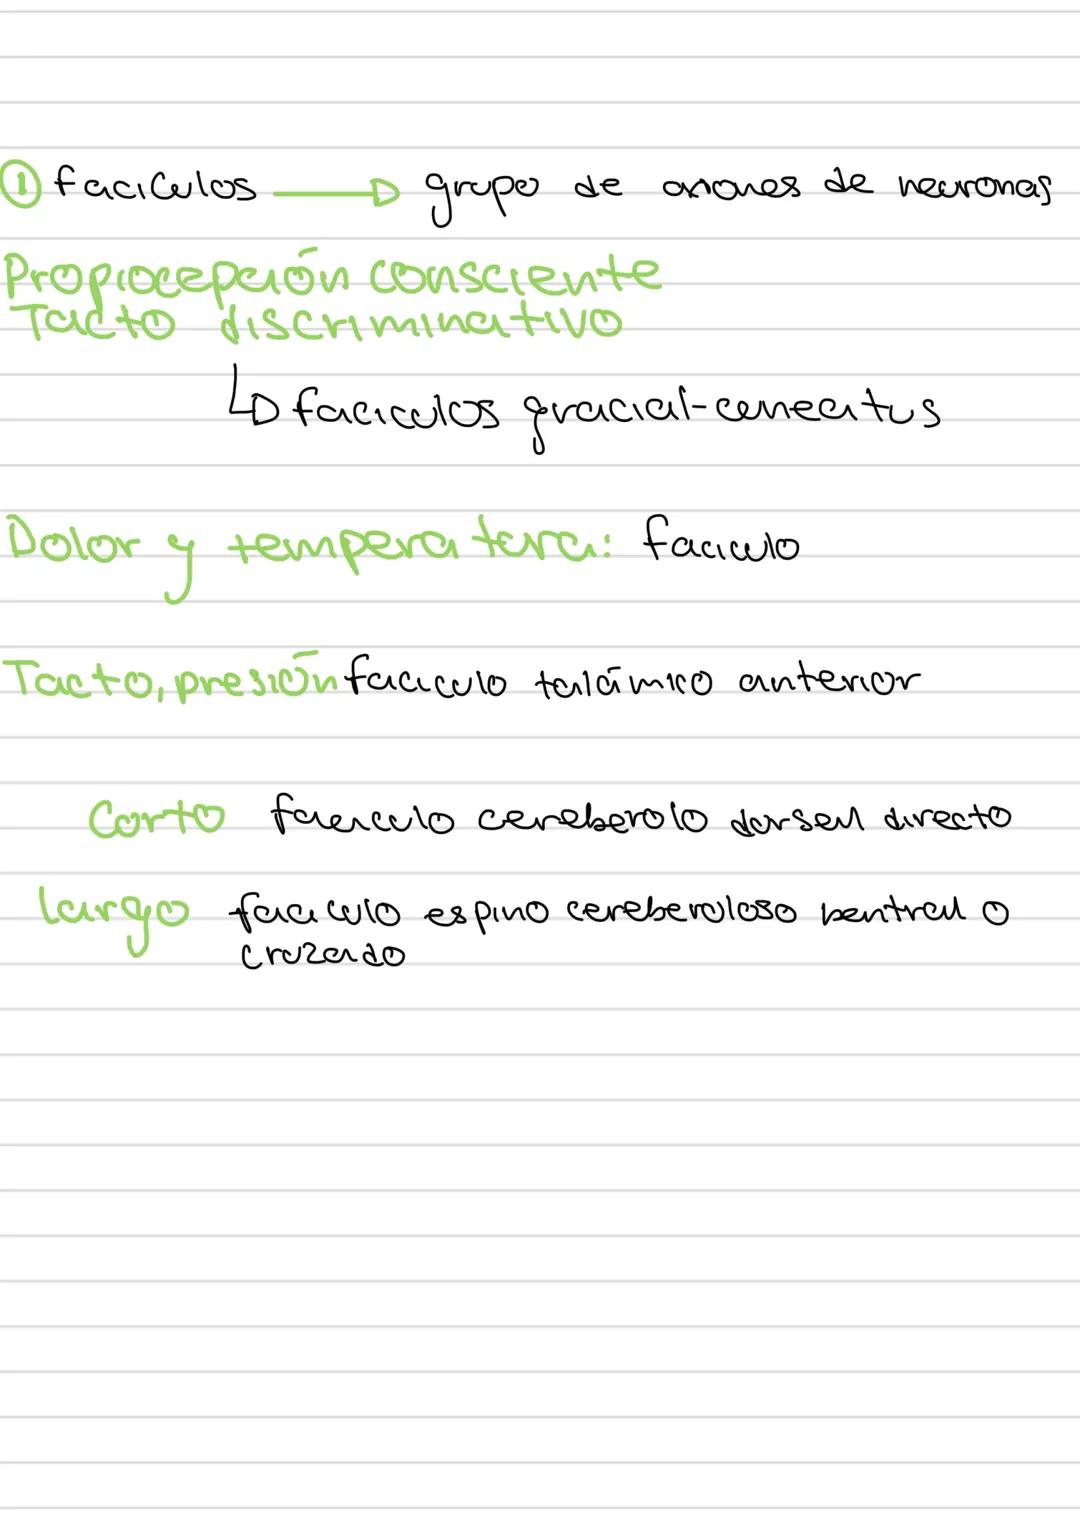 ① faciculos → grupo de axones de neuronas
Propiocepción consciente
Tacto discriminativo
↳ faciculos gracial-cuneatus
Dolor y temperatura: faciculo
Tacto, presión faciculo talámico anterior
Corto faciculo cereberolo dorsal directo
Largo faciculo espino cereberoloso ventral o
cruzado